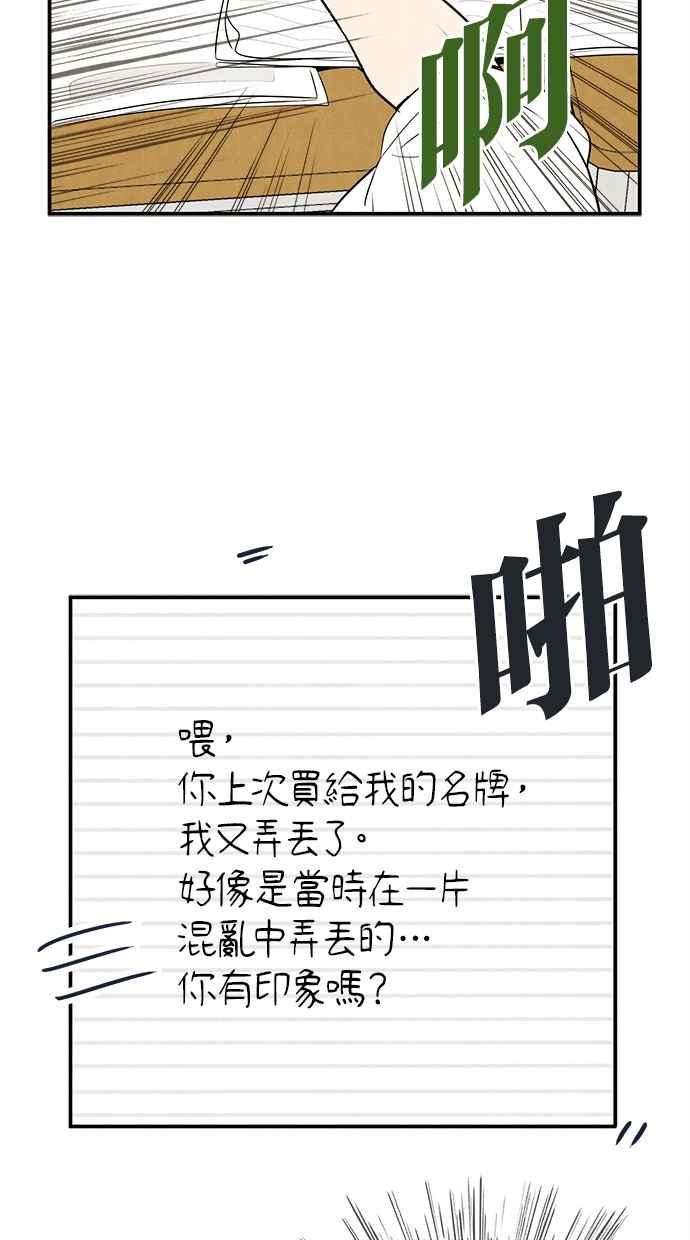 啊
啪
喂，
你上次買給我的名牌，
我又弄丟了。
好像是當時在一片
混亂中弄丟的…
你有印象嗎？